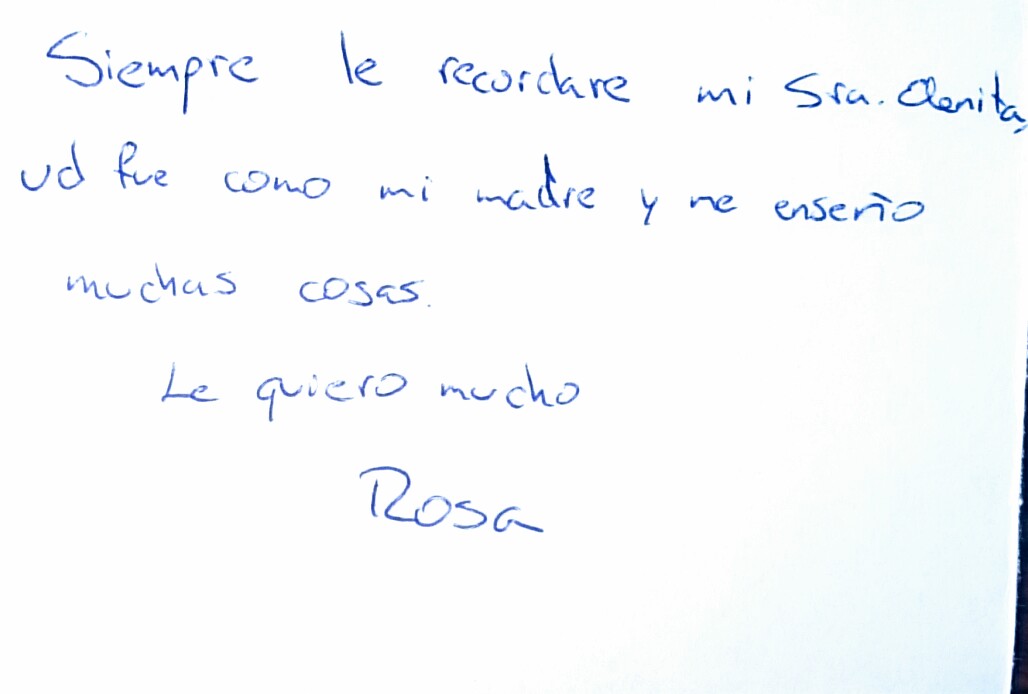 Siempre le recordare mi Sra. Elenita,
ud fue como mi madre y me enseño
muchas cosas.
Le quiero mucho
Rosa